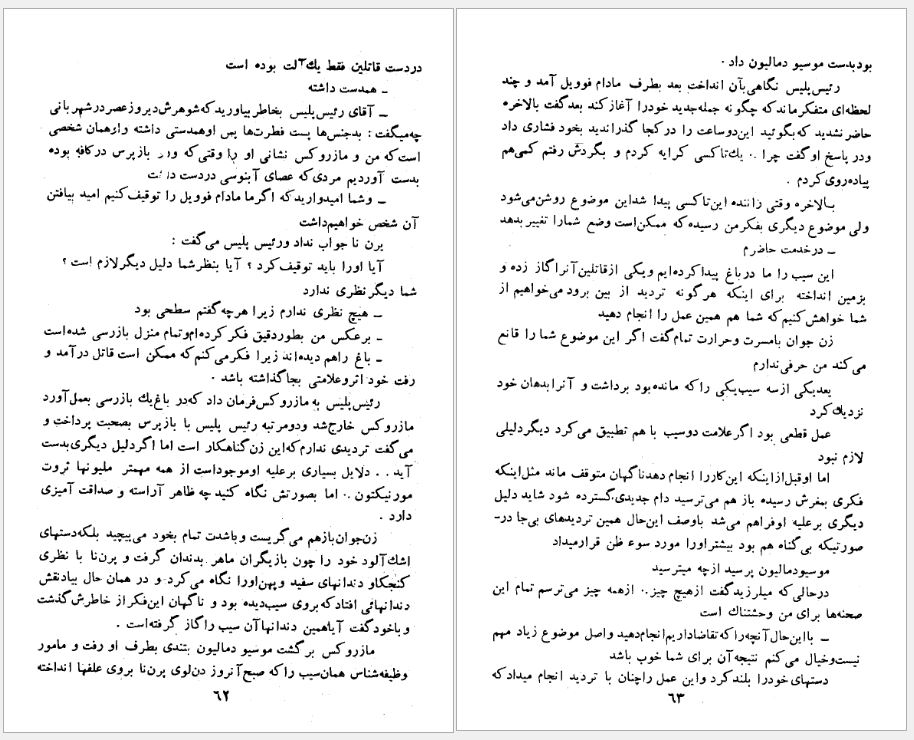 دردست قاتلین فقط یك آلت بوده است
ـ همدست داشته
ـ آقای رئیس پلیس بخاطر بیاورید که شوهرش دیروز عصر در شهربانی
چه میگفت : بدجنس‌ها پست فطرت‌ها پس او همدستی داشته و از همان شخصی
است که من و مازروکس نشانی او را وقتی که ور بازپرس در کافه بوده
بدست آوردیم مردی که عصای آبنوسی دردست داشت
ـ و شما امیدوارید که اگر ما مادام فوویل را توقیف کنیم امید بیافتن
آن شخص خواهیم داشت
پرن نا جواب نداد و رئیس پلیس می گفت :
آیا او را باید توقیف کرد ؟ آیا بنظر شما دلیل دیگر لازم است ؟
شما دیگر نظری ندارد
ـ هیچ نظری ندارم زیرا هرچه گفتم سطحی بود
ـ برعکس من بطور دقیق فکر کرده ام و تمام منزل بازرسی شده است
ـ باغ را هم دیده اند زیرا فکر می کنم که ممکن است قاتل در آمد و
رفت خود اثر و علامتی بجا گذاشته باشد .
رئیس پلیس به مازروکس فرمان داد که در باغ یك بازرسی بعمل آورد
مازروکس خارج شد و دو مرتبه رئیس پلیس با بازپرس بصحبت پرداخت و
می گفت تردیدی ندارم که این زن گناهکار است اما اگر دلیل دیگری بدست
آید . . دلایل بسیاری برعلیه او موجود است از همه مهمتر ملیونها ثروت
مورنیکتون .. اما بصورتش نگاه کنید چه ظاهر آراسته و صداقت آمیزی
دارد .
زن جوان بازهم می گریست و باشدت تمام بخود می پیچید بلکه دستهای
اشك آلود خود را چون بازیگران ماهر بدندان گرفت و پرن نا با نظری
کنجکاو دندانهای سفید و پهن او را نگاه می کرد و در همان حال بیادنقش
دندانهائی افتاد که بروی سیب دیده بود و ناگهان این فکر از خاطرش گذشت
و با خود گفت آیا همین دندانها آن سیب را گاز گرفته است .
مازروکس برگشت موسیو دمالیون بتندی بطرف او رفت و مامور
وظیفه شناس همان سیب را که صبح آنروز دن لوی پرن نا بروی علفها انداخته
٦٢
بود بدست موسیو دمالیون داد .
رئیس پلیس نگاهی بآن انداخت بعد بطرف مادام فوویل آمد و چند
لحظه‌ای متفکر ماند که چگونه جمله جدید خود را آغاز کند بعد گفت بالاخره
حاضر نشدید که بگوئید این دو ساعت را در کجا گذراندید بخود فشاری داد
و در پاسخ او گفت چرا .. یك تاکسی کرایه کردم و بگردش رفتم کمی هم
پیاده روی کردم .
بالاخره وقتی راننده این تاکسی پیدا شد این موضوع روشن می شود
ولی موضوع دیگری بفکر من رسیده که ممکن است وضع شما را تغییر بدهد
ـ در خدمت حاضرم
این سیب را ما در باغ پیدا کرده ایم و یکی از قاتلین آنرا گاز زده و
بزمین انداخته برای اینکه هر گونه تردید از بین برود می خواهیم از
شما خواهش کنیم که شما هم همین عمل را انجام دهید
زن جوان بامسرت و حرارت تمام گفت اگر این موضوع شما را قانع
می کند من حرفی ندارم
بعد یکی از سه سیب یکی را که مانده بود برداشت و آنرا بدهان خود
نزدیك کرد
عمل قطعی بود اگر علامت دو سیب با هم تطبیق می کرد دیگر دلیلی
لازم نبود
اما او قبل از اینکه این کار را انجام دهد ناگهان متوقف ماند مثل اینکه
فکری بمغرش رسیده باز هم می ترسید دام جدیدی گسترده شود شاید دلیل
دیگری برعلیه او فراهم می شد باوصف این حال همین تردیدهای بی جا در-
صورتیکه بی گناه هم بود بیشتر او را مورد سوء ظن قرار میداد
موسیو دمالیون پرسید از چه میترسید
در حالی که میلرزید گفت از هیچ چیز .. از همه چیز می ترسم تمام این
صحنه‌ها برای من وحشتناك است
ـ با این حال آنچه را که تقاضا داریم انجام دهید و اصل موضوع زیاد مهم
نیست و خیال می کنم نتیجه آن برای شما خوب باشد
دستهای خود را بلند کرد و این عمل را چنان با تردید انجام میداد که
٦٣